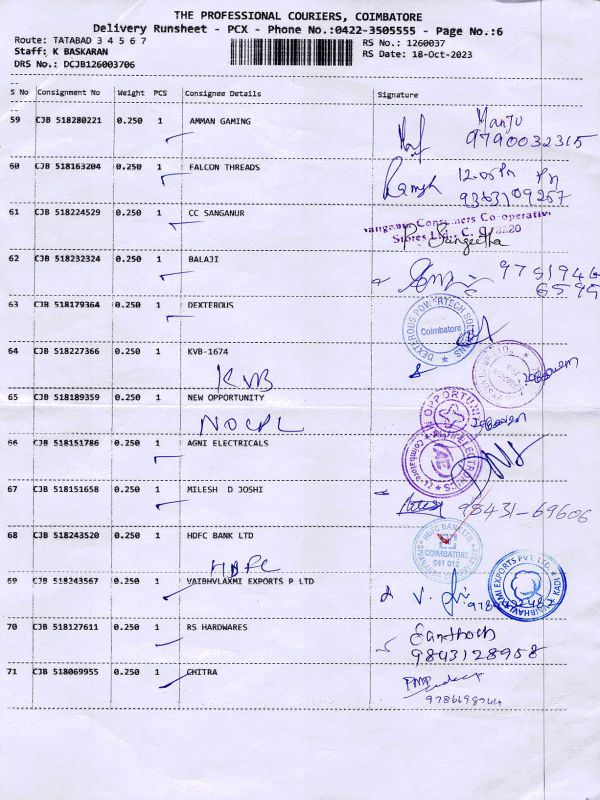 THE PROFESSIONAL COURIERS, COIMBATORE
Delivery Runsheet - PCX - Phone No.:0422-3505555 - Page No.:6
Route: TATABAD 3 4 5 6 7 RS No.: 1260037
Staff: K BASKARAN RS Date: 18-Oct-2023
DRS No.: DCJB126003706
S No Consignment No Weight PCS Consignee Details Signature
59 CJB 518280221 0.250 1 AMMAN GAMING Manju
9790032315
60 CJB 518163204 0.250 1 FALCON THREADS Ramesh 12.05 Pn
9363109257
61 CJB 518224529 0.250 1 CC SANGANUR
Stores
P. Sangeetha
62 CJB 518232324 0.250 1 BALAJI
63 CJB 518179364 0.250 1 DEXTEROUS DEXTEROUS POWERTECH SOLUTIONS
Coimbatore
64 CJB 518227366 0.250 1 KVB-1674
KVB
65 CJB 518189359 0.250 1 NEW OPPORTUNITY OPPORTUNITY
NOCPL
66 CJB 518151786 0.250 1 AGNI ELECTRICALS
Coimbatore-12
67 CJB 518151658 0.250 1 MILESH D JOSHI 98431-69606
68 CJB 518243520 0.250 1 HDFC BANK LTD HDFC BANK LTD
COIMBATORE
641 012
HDFC
69 CJB 518243567 0.250 1 VAIBHVLAXMI EXPORTS P LTD VAIBHAVLAXMI EXPORTS PVT. LTD.
70 CJB 518127611 0.250 1 RS HARDWARES Santhosh
9843128958
71 CJB 518069955 0.250 1 CHITRA